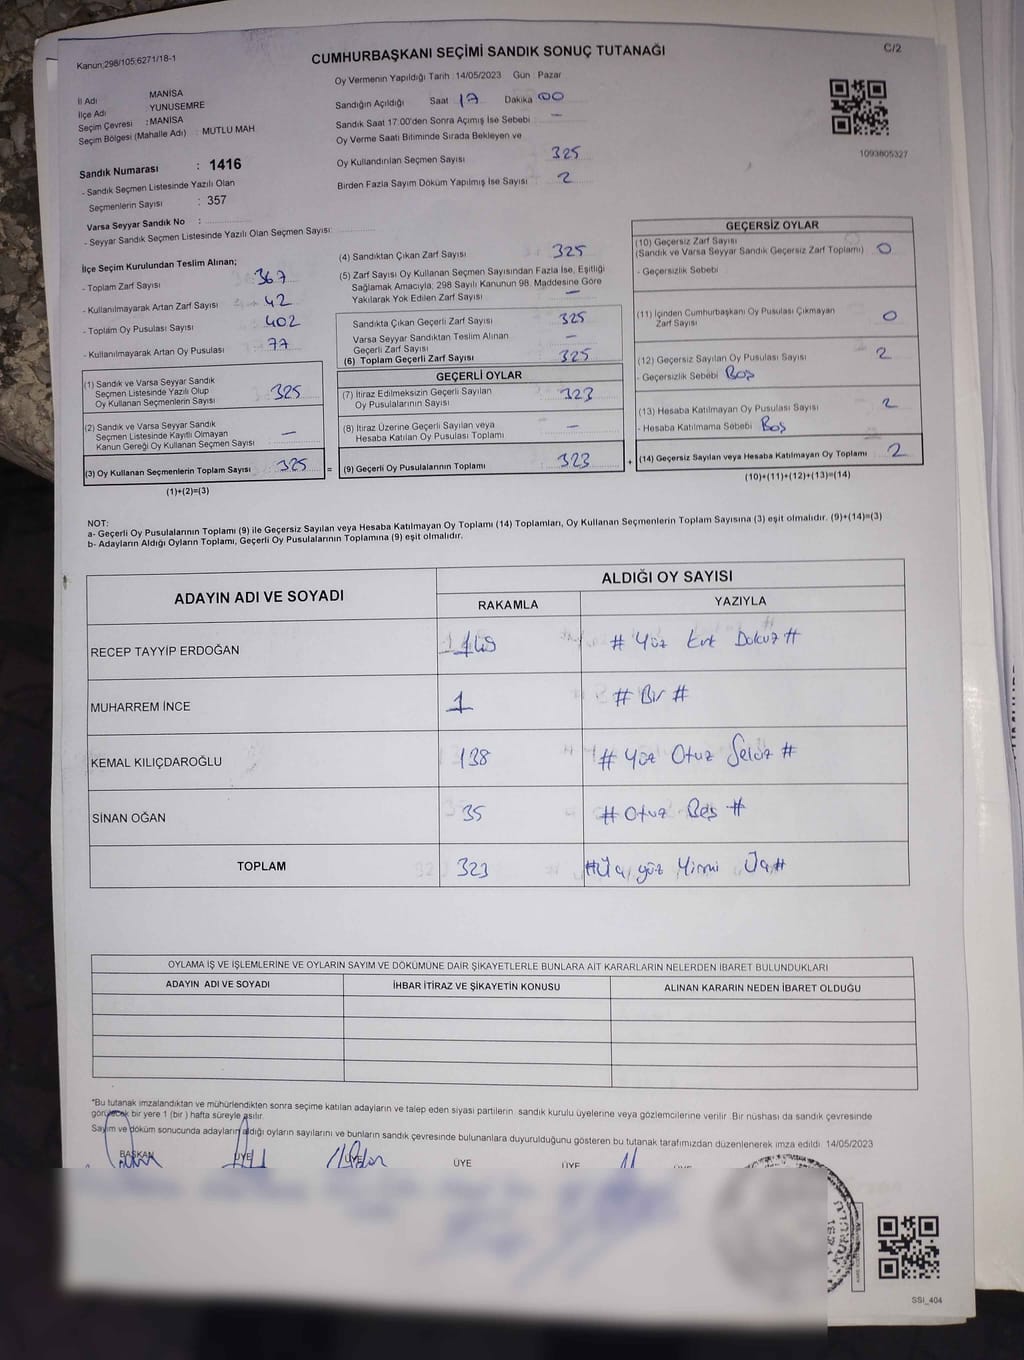 Kanun;298/105;6271/18-1
CUMHURBAŞKANI SEÇİMİ SANDIK SONUÇ TUTANAĞI
C/2
İl Adı MANİSA
İlçe Adı YUNUSEMRE
Seçim Çevresi : MANİSA
Seçim Bölgesi (Mahalle Adı) : MUTLU MAH
Sandık Numarası : 1416
- Sandık Seçmen Listesinde Yazılı Olan
Seçmenlerin Sayısı : 357
Varsa Seyyar Sandık No :
- Seyyar Sandık Seçmen Listesinde Yazılı Olan Seçmen Sayısı:
Oy Vermenin Yapıldığı Tarih : 14/05/2023 Gün : Pazar
Sandığın Açıldığı Saat 17 Dakika 00
Sandık Saat 17:00'den Sonra Açımış İse Sebebi : —
Oy Verme Saati Bitiminde Sırada Bekleyen ve
Oy Kullandırılan Seçmen Sayısı 325
Birden Fazla Sayım Döküm Yapılmış İse Sayısı : 2
1093805327
İlçe Seçim Kurulundan Teslim Alınan;
- Toplam Zarf Sayısı : 367
- Kullanılmayarak Artan Zarf Sayısı : 42
- Toplam Oy Pusulası Sayısı : 402
- Kullanılmayarak Artan Oy Pusulası : 77
(1) Sandık ve Varsa Seyyar Sandık
Seçmen Listesinde Yazılı Olup
Oy Kullanan Seçmenlerin Sayısı : 325
(2) Sandık ve Varsa Seyyar Sandık
Seçmen Listesinde Kayıtlı Olmayan
Kanun Gereği Oy Kullanan Seçmen Sayısı : —
(3) Oy Kullanan Seçmenlerin Toplam Sayısı : 325
(1)+(2)=(3)
=
(4) Sandıktan Çıkan Zarf Sayısı : 325
(5) Zarf Sayısı Oy Kullanan Seçmen Sayısından Fazla İse, Eşitliği
Sağlamak Amacıyla; 298 Sayılı Kanunun 98. Maddesine Göre
Yakılarak Yok Edilen Zarf Sayısı : —
Sandıkta Çıkan Geçerli Zarf Sayısı : 325
Varsa Seyyar Sandıktan Teslim Alınan
Geçerli Zarf Sayısı : —
(6) Toplam Geçerli Zarf Sayısı : 325
GEÇERLİ OYLAR
(7) İtiraz Edilmeksizin Geçerli Sayılan
Oy Pusulalarının Sayısı : 323
(8) İtiraz Üzerine Geçerli Sayılan veya
Hesaba Katılan Oy Pusulası Toplamı : —
(9) Geçerli Oy Pusulalarının Toplamı : 323
+
GEÇERSİZ OYLAR
(10) Geçersiz Zarf Sayısı
(Sandık ve Varsa Seyyar Sandık Geçersiz Zarf Toplamı) : 0
- Geçersizlik Sebebi
(11) İçinden Cumhurbaşkanı Oy Pusulası Çıkmayan
Zarf Sayısı : 0
(12) Geçersiz Sayılan Oy Pusulası Sayısı : 2
- Geçersizlik Sebebi Boş
(13) Hesaba Katılmayan Oy Pusulası Sayısı : 2
- Hesaba Katılmama Sebebi Boş
(14) Geçersiz Sayılan veya Hesaba Katılmayan Oy Toplamı : 2
(10)+(11)+(12)+(13)=(14)
NOT:
a- Geçerli Oy Pusulalarının Toplamı (9) ile Geçersiz Sayılan veya Hesaba Katılmayan Oy Toplamı (14) Toplamları, Oy Kullanan Seçmenlerin Toplam Sayısına (3) eşit olmalıdır. (9)+(14)=(3)
b- Adayların Aldığı Oyların Toplamı, Geçerli Oy Pusulalarının Toplamına (9) eşit olmalıdır.
ADAYIN ADI VE SOYADI
ALDIĞI OY SAYISI
RAKAMLA YAZIYLA
RECEP TAYYİP ERDOĞAN 149 # Yüz Kırk Dokuz #
MUHARREM İNCE 1 # Bir #
KEMAL KILIÇDAROĞLU 138 # Yüz Otuz Sekiz #
SİNAN OĞAN 35 # Otuz Beş #
TOPLAM 323 # Üç yüz Yirmi Üç #
OYLAMA İŞ VE İŞLEMLERİNE VE OYLARIN SAYIM VE DÖKÜMÜNE DAİR ŞİKAYETLERLE BUNLARA AİT KARARLARIN NELERDEN İBARET BULUNDUKLARI
ADAYIN ADI VE SOYADI İHBAR İTİRAZ VE ŞİKAYETİN KONUSU ALINAN KARARIN NEDEN İBARET OLDUĞU
*Bu tutanak imzalandıktan ve mühürlendikten sonra seçime katılan adayların ve talep eden siyasi partilerin. sandık kurulu üyelerine veya gözlemcilerine verilir. Bir nüshası da sandık çevresinde
görülecek bir yere 1 (bir ) hafta süreyle asılır.
Sayım ve döküm sonucunda adayların aldığı oyların sayılarını ve bunların sandık çevresinde bulunanlara duyurulduğunu gösteren bu tutanak tarafımızdan düzenlenerek imza edildi. 14/05/2023
BAŞKAN ÜYE ÜYE ÜYE ÜYE ÜYE
SSI_404